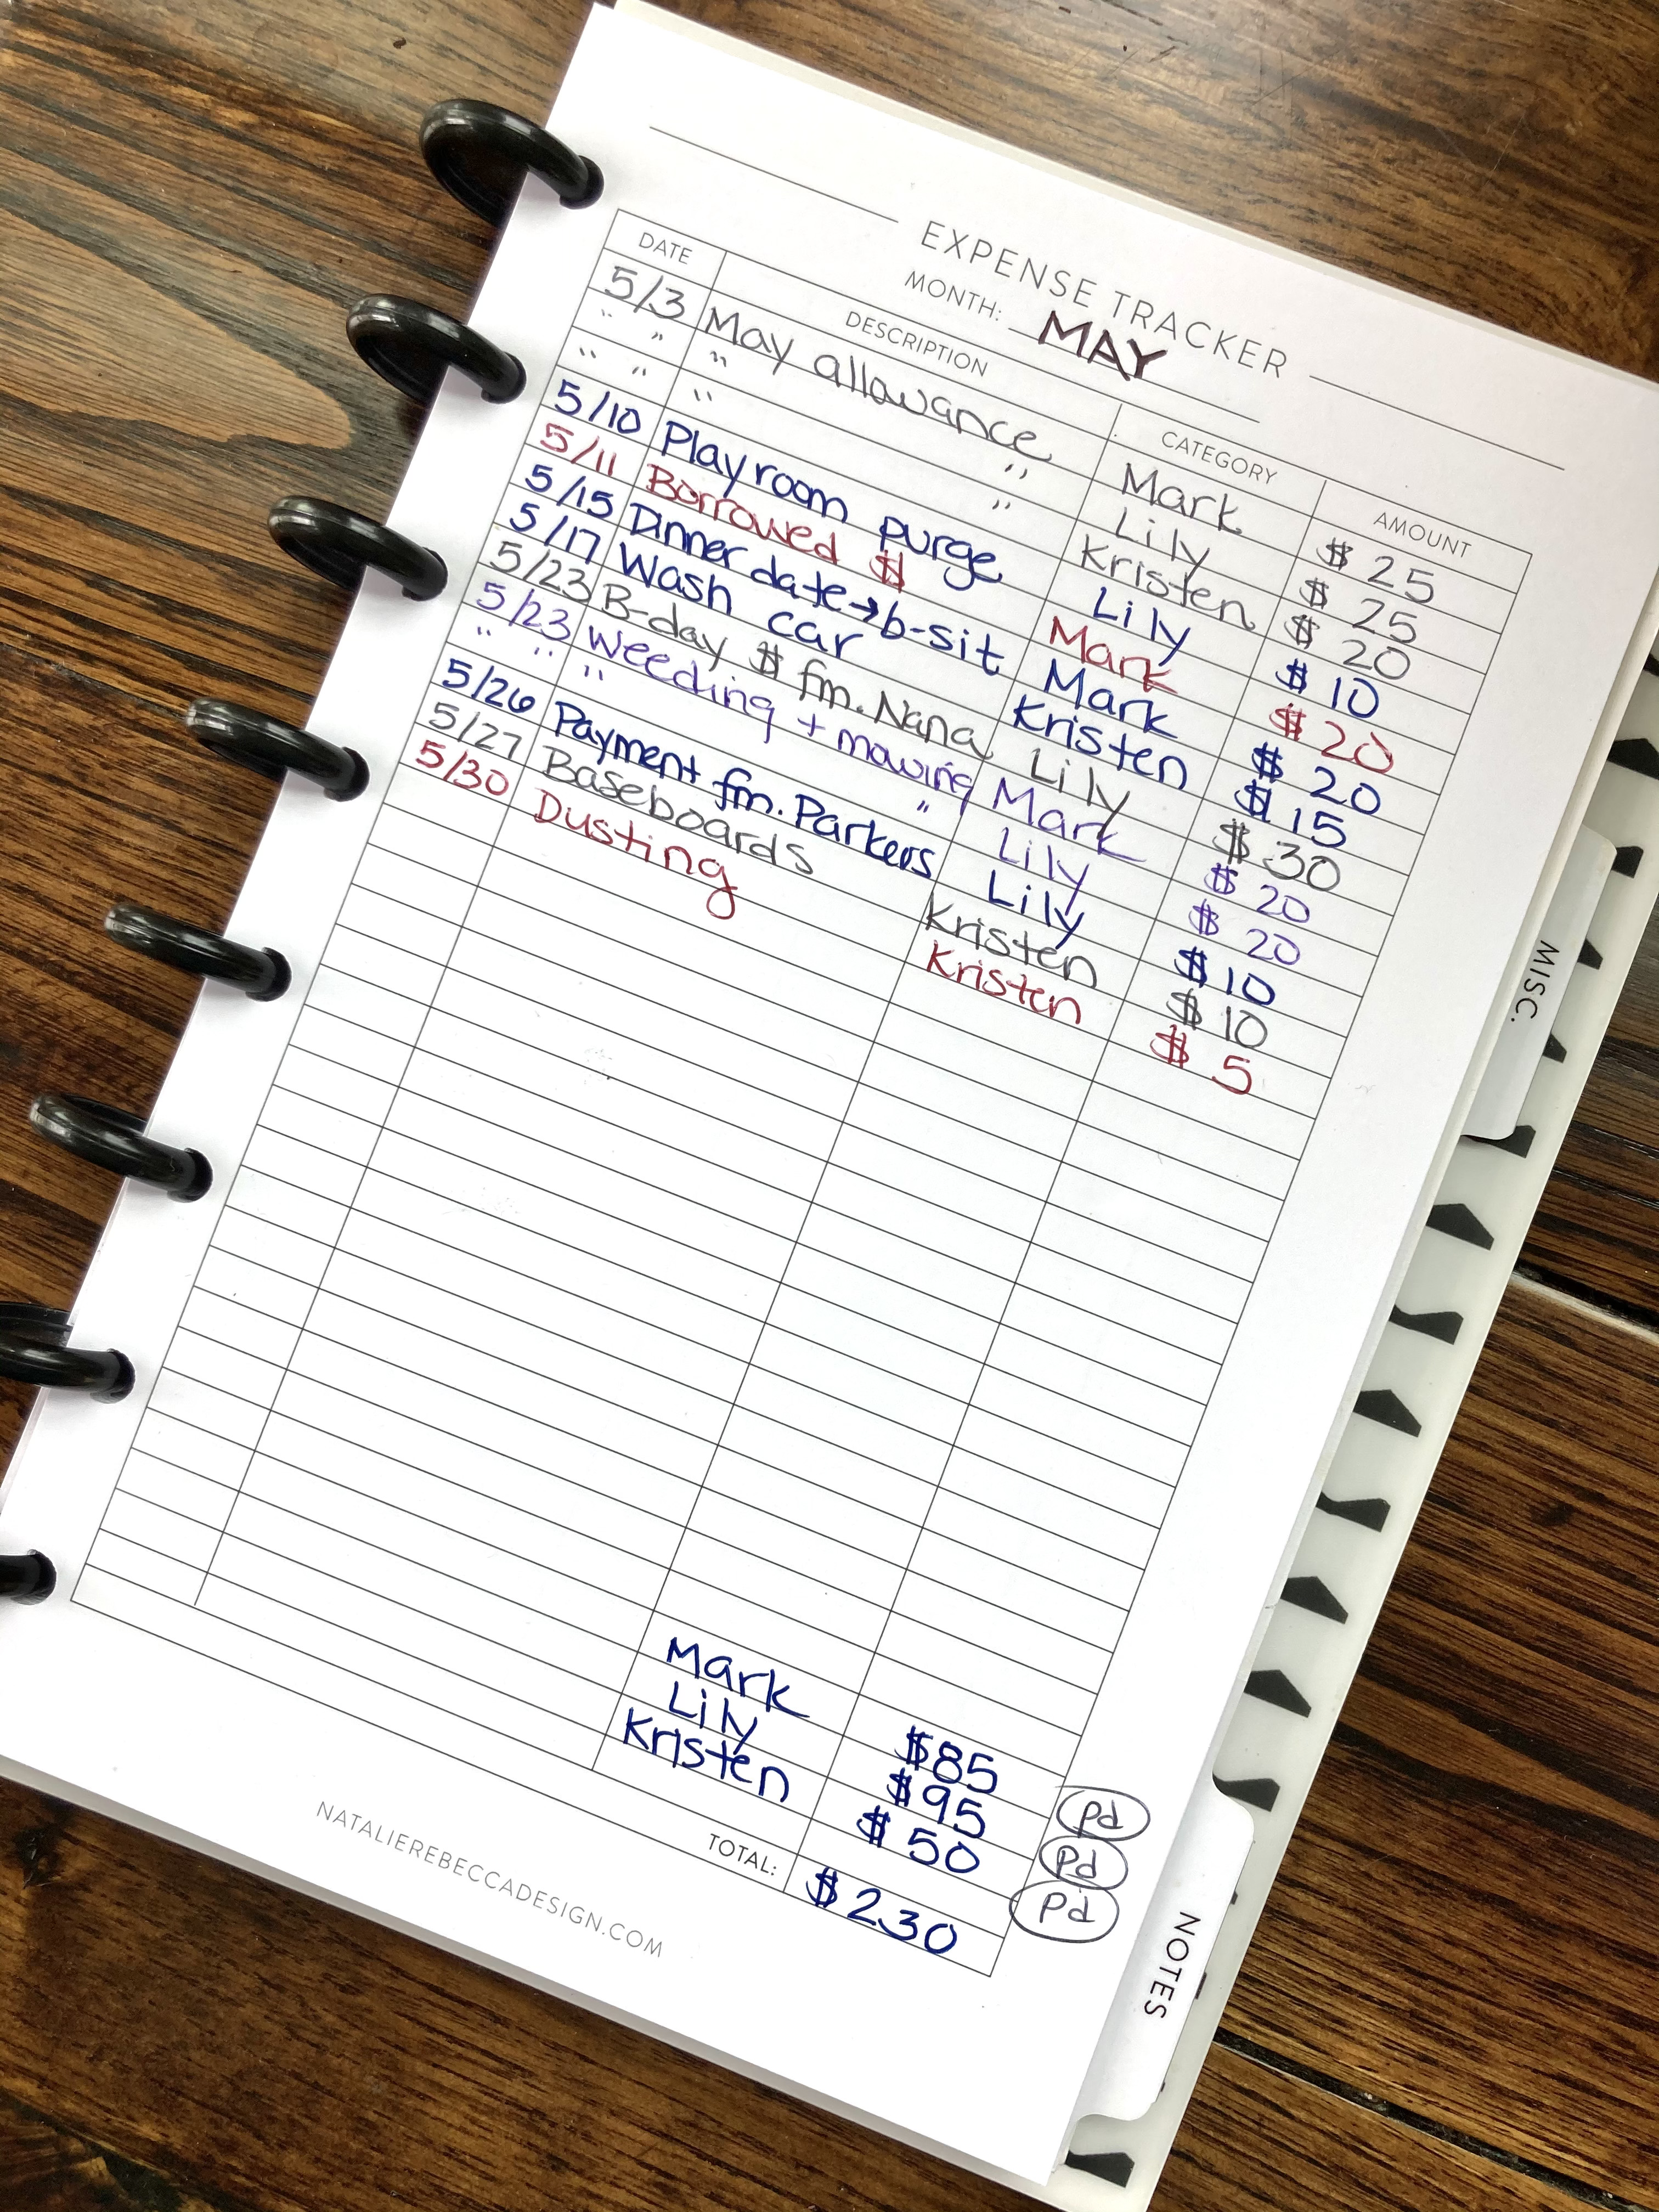 EXPENSE TRACKER
MONTH: MAY
DATE DESCRIPTION CATEGORY AMOUNT
5/3 May allowance Mark $ 25
" " " " Lily $ 25
" " " " Kristen $ 20
5/10 Playroom purge Lily $ 10
5/11 Borrowed $ Mark $ 20
5/15 Dinner date→b-sit Mark $ 20
5/17 Wash car Kristen $ 15
5/23 B-day $ fm. Nana Lily $ 30
5/23 Weeding + mowing Mark $ 20
" " " " Lily $ 20
5/26 Payment fm. Parkers Lily $ 10
5/27 Baseboards Kristen $ 10
5/30 Dusting Kristen $ 5
Mark $85 pd
Lily $95 pd
Kristen $ 50 pd
TOTAL: $ 230
NATALIEREBECCADESIGN.COM
MISC.
NOTES